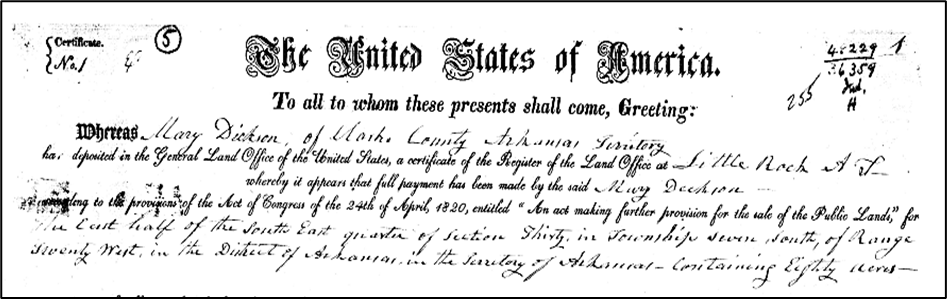 Certificate.
No.
5
The United States of America.
4.229
36359
Ind.
H
255
To all to whom these presents shall come, Greeting:
Whereas Mary Dickson, of Clark County Arkansas Territory
has deposited in the General Land Office of the United States, a certificate of the Register of the Land Office at Little Rock A T
whereby it appears that full payment has been made by the said Mary Dickson
according to the provisions of the Act of Congress of the 24th of April, 1820, entitled "An act making further provision for the sale of the Public Lands," for
the East half of the South East quarter of Section Thirty, in Township seven South, of Range
Twenty West, in the District of Arkansas, in the Territory of Arkansas - Containing Eighty acres -